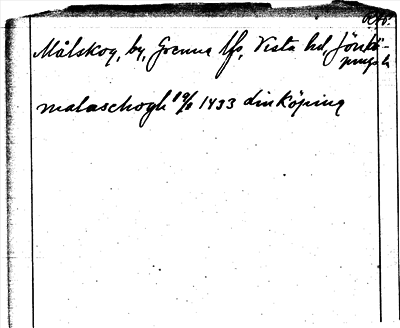 Målskog, by, Grenna lfs, Vista hd, Jönkö-
pings l.
malaschogh 10/8 1433 Linköping